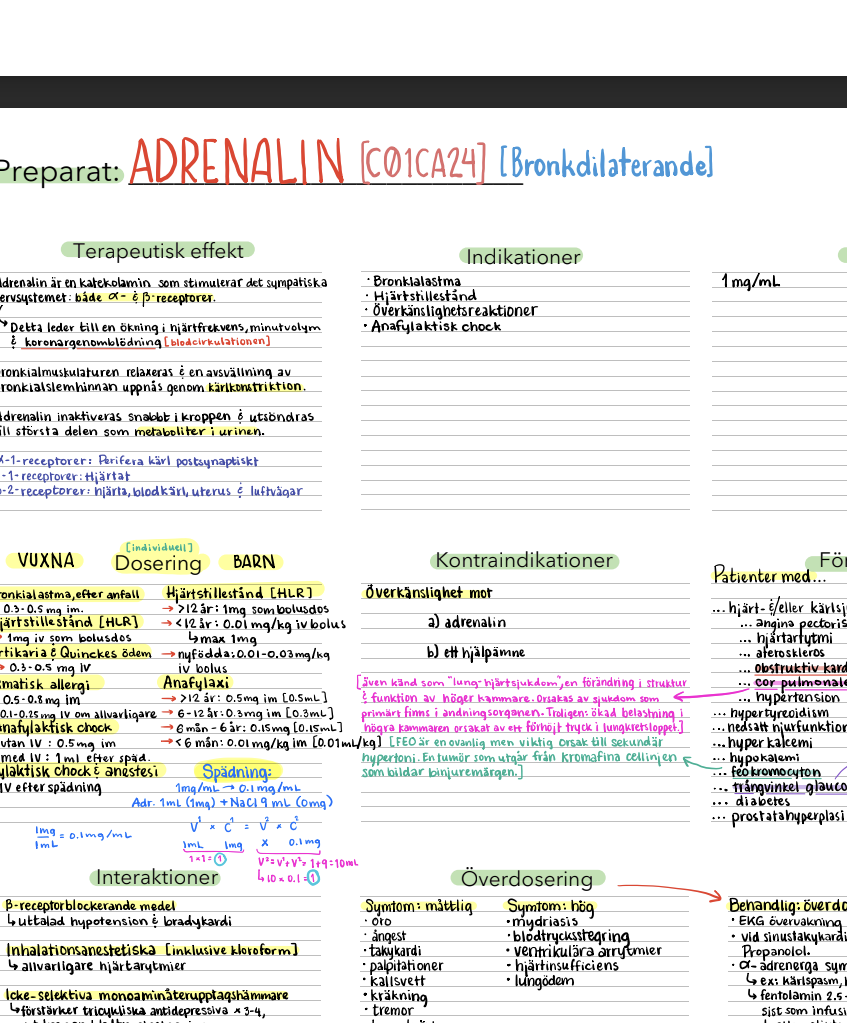 Preparat: ADRENALIN [C01CA24] [Bronkdilaterande]
Terapeutisk effekt
drenalin är en katekolamin som stimulerar det sympatiska
ervsystemet: både α- & β-receptorer.
↳ Detta leder till en ökning i hjärtfrekvens, minutvolym
& koronargenomblödning [blodcirkulationen]
ronkialmuskulaturen relaxeras & en avsvällning av
ronkialslemhinnan uppnås genom kärlkonstriktion.
drenalin inaktiveras snabbt i kroppen & utsöndras
ill största delen som metaboliter i urinen.
-1-receptorer: Perifera kärl postsynaptiskt
-1-receptorer: Hjärtat
-2-receptorer: hjärta, blodkärl, uterus & luftvägar
Indikationer
· Bronkialastma
· Hjärtstillestånd
· Överkänslighetsreaktioner
· Anafylaktisk chock
1mg/mL
[individuell]
VUXNA Dosering BARN
ronkialastma, efter anfall
0.3-0.5 mg im.
järtstillestånd [HLR]
1mg iv som bolusdos
rtikaria & Quinckes ödem
→ 0.3-0.5 mg IV
matisk allergi
0.5-0.8mg im
0.1-0.25mg IV om allvarligare
anafylaktisk chock
utan IV : 0.5mg im
med IV : 1ml efter späd.
ylaktisk chock & anestesi
IV efter spädning
Hjärtstillestånd [HLR]
→ >12 år: 1mg som bolusdos
→ <12 år: 0.01 mg/kg iv bolus
↳ max 1mg
→ nyfödda: 0.01-0.03mg/kg
iv bolus
Anafylaxi
→ >12 år: 0.5mg im [0.5mL]
→ 6-12år: 0.3mg im [0.3mL]
→ 6mån - 6år: 0.15mg [0.15mL]
→ <6 mån: 0.01mg/kg im [0.01mL/kg]
Spädning:
1mg/mL → 0.1mg/mL
Adr. 1mL (1mg) + NaCl 9 mL (0mg)
V¹ × C¹ = V² × C²
1mL 1mg x 0.1mg
1×1=1
V²=V¹+V²= 1+9=10mL
↳ 10 × 0.1 = 1
1mg
1mL
= 0.1mg/mL
Kontraindikationer
Överkänslighet mot
a) adrenalin
b) ett hjälpämne
[även känd som "lung-hjärtsjukdom", en förändring i struktur
& funktion av höger kammare. Orsakas av sjukdom som
primärt finns i andningsorganen. Troligen: ökad belastning i
högra kammaren orsakat av ett förhöjt tryck i lungkretsloppet.]
[FEO är en ovanlig men viktig orsak till sekundär
hypertoni. En tumör som utgår från kromafina cellinjen
som bildar binjuremärgen.]
För
Patienter med...
... hjärt- &/eller kärlsj
... angina pectoris
... hjärtartytmi
... ateroskleros
... obstruktiv kard
... cor pulmonale
... hypertension
... hypertyreoidism
... nedsatt njurfunktion
... hyperkalcemi
... hypokalemi
... feokromocyton
... trångvinkel glauco
... diabetes
... prostatahyperplasi
Interaktioner
β-receptorblockerande medel
↳ uttalad hypotension & bradykardi
Inhalationsanestetiska [inklusive kloroform]
↳ allvarligare hjärtarytmier
Icke-selektiva monoaminåterupptagshämmare
↳ förstärker tricykliska antidepressiva × 3-4,
Överdosering
Symtom: måttlig
· oro
· ångest
· takykardi
· palpitationer
· kallsvett
· kräkning
· tremor
Symtom: hög
· mydriasis
· blodtrycksstegring
· ventrikulära arrytmier
· hjärtinsufficiens
· lungödem
Behandlig: överdo
· EKG övervakning
· vid sinustakykardi
Propanolol.
· α- adrenerga sym
↳ ex: kärlspasm, h
↳ fentolamin 2.5-
sjst som infus